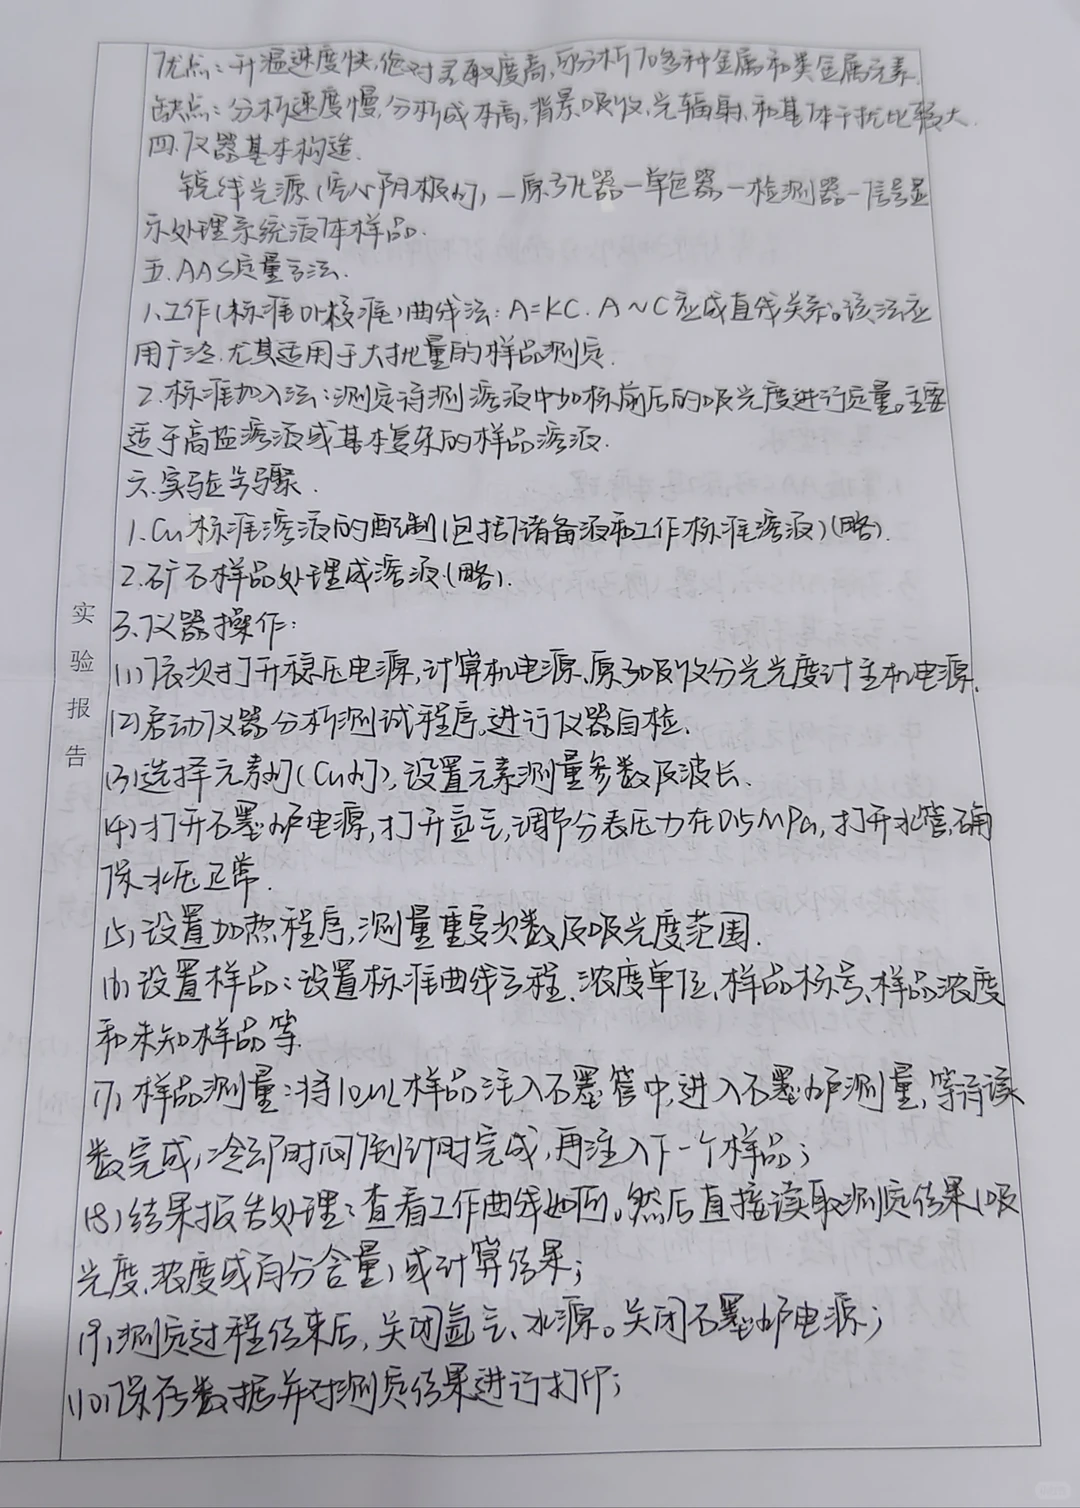 优点：升温速度快，绝对灵敏度高，可分析70多种金属和类金属元素.
缺点：分析速度慢，分析成本高，背景吸收、光辐射和基体干扰比较大.
四.仪器基本构造.
锐线光源(空心阴极灯)—原子化器—单色器—检测器—信号显
示处理系统液体样品.
五.AAS定量方法.
1.工作(标准或校准)曲线法：A=KC. A~C应成直线关系。该法应
用广泛.尤其适用于大批量的样品测定.
2.标准加入法：测定待测溶液中加标前后的吸光度进行定量。主要
适于高盐溶液或基本复杂的样品溶液.
六.实验步骤.
1.Cu标准溶液的配制(包括储备液和工作标准溶液)(略).
2.矿石样品处理成溶液.(略).
实验报告
3.仪器操作：
(1)依次打开稳压电源,计算机电源、原子吸收分光光度计主机电源.
(2)启动仪器分析测试程序。进行仪器自检.
(3)选择元素灯(Cu灯),设置元素测量参数及波长.
(4)打开石墨炉电源,打开氩气,调节分表压力在0.15MPa,打开水管,确
保水压正常.
(5)设置加热程序,测量重复次数及吸光度范围.
(6)设置样品：设置标准曲线方程、浓度单位、样品标号、样品浓度
和未知样品等.
(7)样品测量：将10uL样品注入石墨管中,进入石墨炉测量,等待读
数完成,冷却时间倒计时完成,再注入下一个样品；
(8)结果报告处理：查看工作曲线如何。然后直接读取测定结果(吸
光度、浓度或百分含量)或计算结果；
(9)测定过程结束后,关闭氩气、水源。关闭石墨炉电源；
(10)保存数据并对测定结果进行打印；